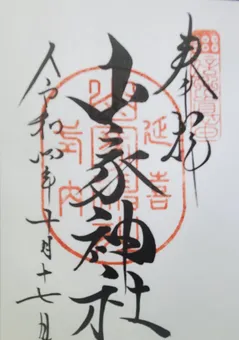 奉拝
延喜
式内
山家神社
令和四年十一月十七日